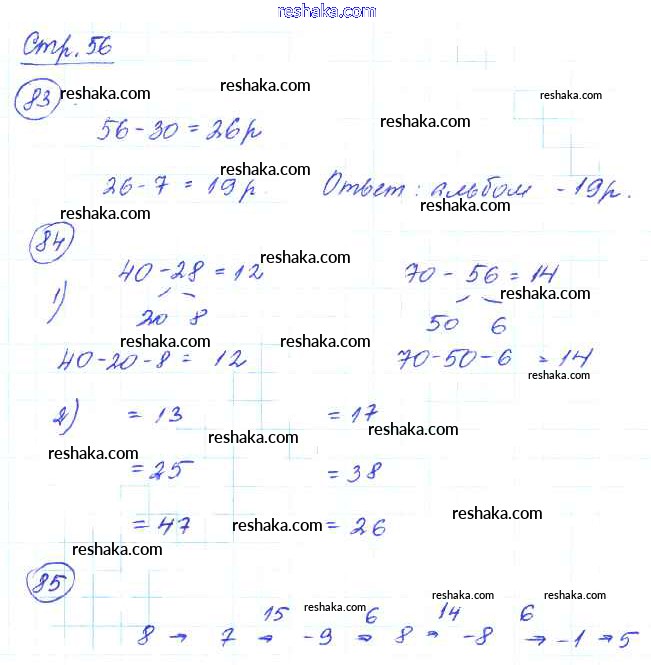 reshaka.com
Стр. 56
83 reshaka.com reshaka.com reshaka.com
56-30=26р reshaka.com
reshaka.com
26-7=19р. Ответ: альбом -19р.
reshaka.com reshaka.com
84 reshaka.com
1) 40-28=12 70-56=14
reshaka.com
20 8 50 6
reshaka.com reshaka.com
40-20-8= 12 70-50-6 =14
reshaka.com
2) =13 =17
reshaka.com reshaka.com
reshaka.com
=25 =38
reshaka.com
=47 reshaka.com =26
reshaka.com
85
reshaka.com reshaka.com reshaka.com
15 6 14 6
8 → 7 → -9 → 8 → -8 → -1 → 5